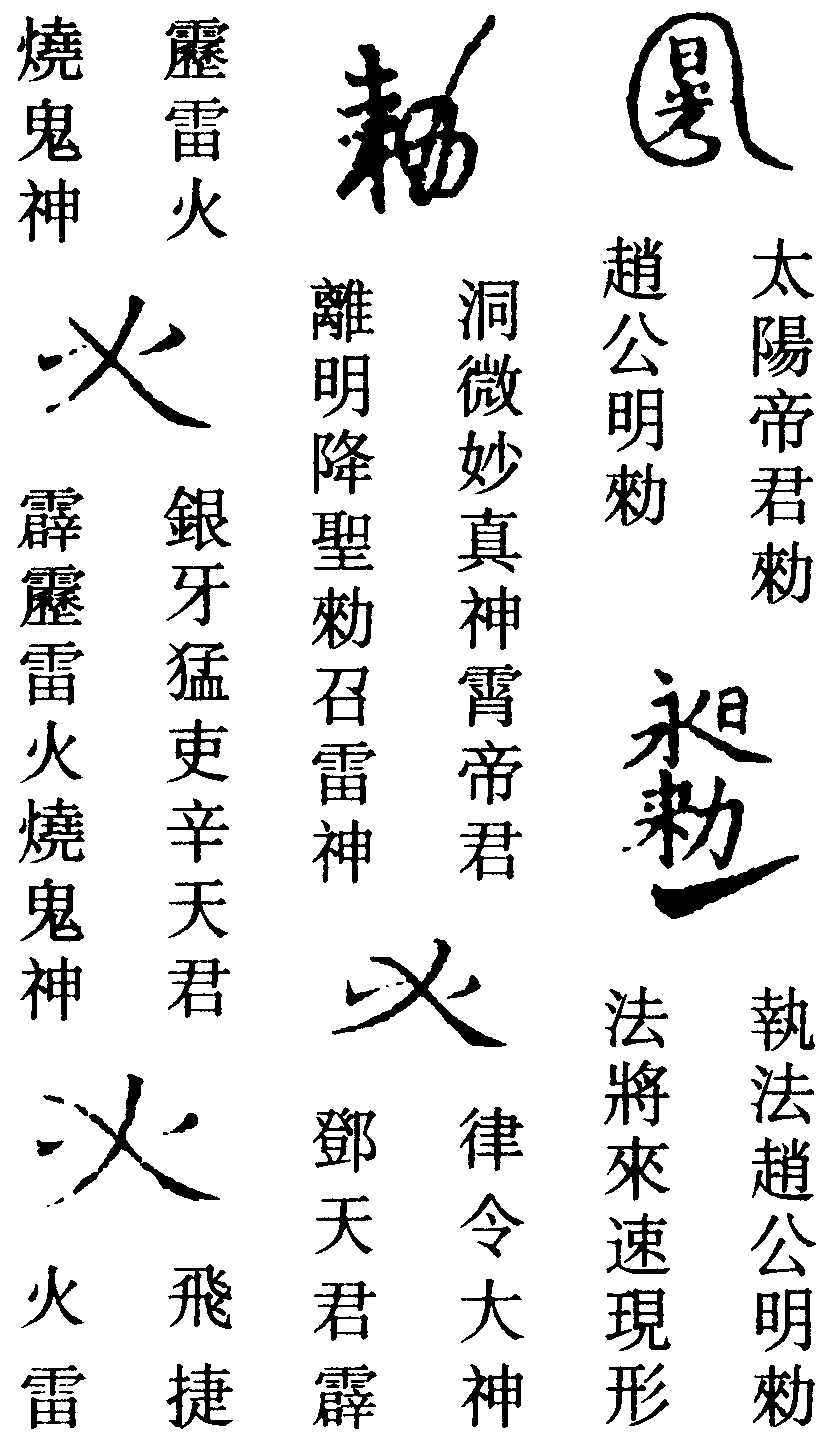 太陽帝君勑
趙公明勑
永日勑
執法趙公明勑
法將來速現形
勅
洞微妙真神霄帝君
離明降聖勑召雷神
火
律令大神
鄧天君霹
靂雷火
燒鬼神
火
銀牙猛吏辛天君
霹靂雷火燒鬼神
火
飛捷
火雷